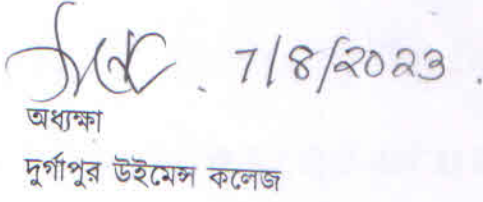 7/8/2023.
অধ্যক্ষা
দুর্গাপুর উইমেন্স কলেজ